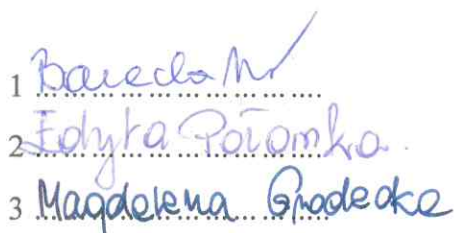 1
2 Edyta Połomka
3 Magdalena Grodecka